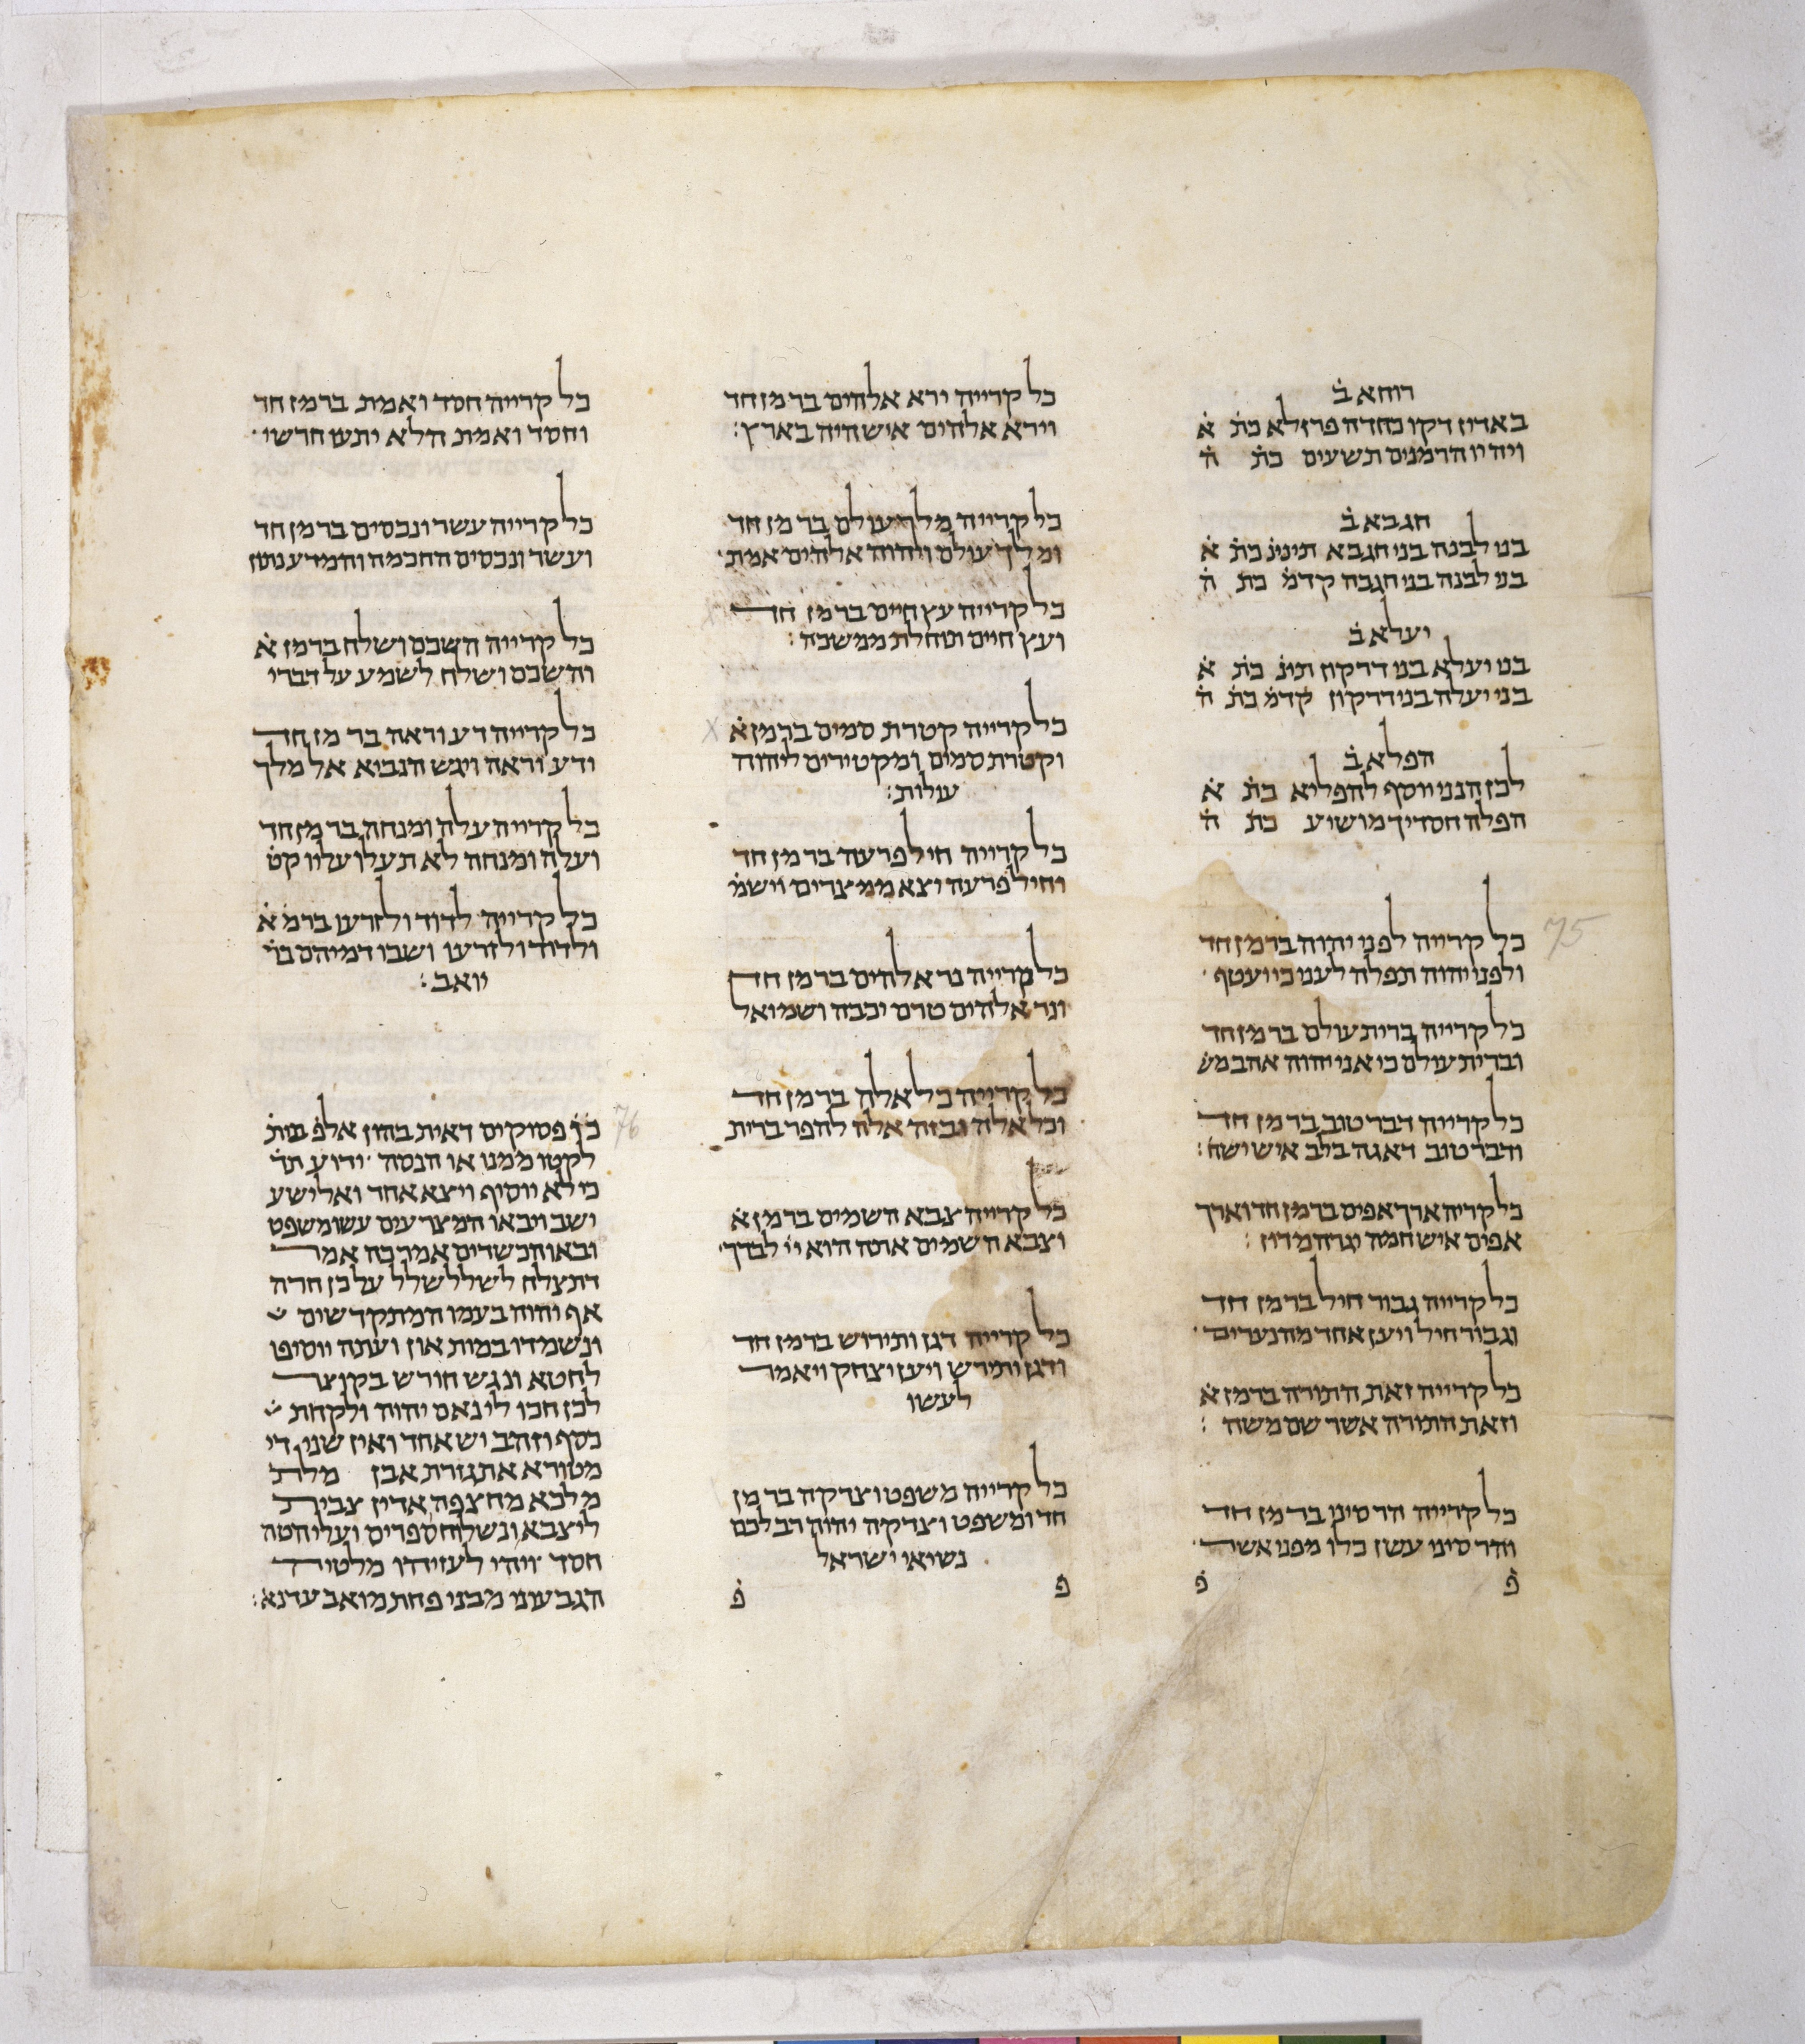 רוחא ב̇
באדין דקו כחדה פרזלא כת̇ א̇
ויהיו הרמנים תשעים כת̇ ה̇
חגבא ב̇
בני לבנה בני חגבא תינינ̇ כת̇ א̇
בני לבנה בני חגבה קדמ̇ כת̇ ה̇
יעלא ב̇
בני יעלא בני דרקון תינ̇ כת̇ א̇
בני יעלה בני דרקון קדמ̇ כת̇ ה̇
הפלא ב̇
לכן הנני יוסף להפליא כת̇ א̇
הפלה חסדיך מושיע כת̇ ה̇
כל קרייה לפני יהוה בר מן חד
ולפני יהוה תפלה לעני כי יעטף
כל קרייה ברית עולם בר מן חד
וברית עולם כי אני יהוה אהב מש̇
כל קרייה דבר טוב בר מן חד
ודבר טוב דאגה בלב איש ישח׃
כל קריה ארך אפים בר מן חד וארך
אפים איש חמה יגרה מדון׃
כל קרייה גבור חיל בר מן חד
וגבור חיל ויען אחד מהנערים
כל קרייה זאת התורה בר מן א̇
וזאת התורה אשר שם משה׃
כל קרייה הר סיני בר מן חד
והר סיני עשן כלו מפני אשר
פ̇ פ̇
כל קרייה ירא אלהים בר מן חד
וירא אלהים איש היה בארץ׃
כל קרייה מלך עולם בר מן חד
ומלך עולם ויהוה אלהים אמת
כל קרייה עץ חיים בר מן חד
ועץ חיים תוחלת ממשכה׃
כל קרייה קטרת סמים בר מן א̇
וקטרת סמים ומקטירים ליהוה
עולות׃
כל קרייה חיל פרעה בר מן חד
וחיל פרעה יצא ממצרים וישמ̇
כל קרייה נר אלהים בר מן חד
ונר אלהים טרם יכבה ושמואל
כל קרייה כל אלה בר מן חד
וכל אלה ובזה אלה להפר ברית
כל קרייה צבא השמים בר מן א̇
וצבא השמים אתה הוא יי̇ לבדך
כל קרייה דגן ותירוש בר מן חד
ודגן ותירש ויען יצחק ויאמר
לעשו
כל קרייה משפט וצדקה בר מן
חד ומשפט וצדקה יהוה רב לכם
נשיאי ישראל
פ̇ פ̇
כל קרייה חסד ואמת בר מן חד
וחסד ואמת הלא יתעו חרשי
כל קרייה עשר ונכסים בר מן חד
ועשר ונכסים החכמה והמדע נתון
כל קרייה השכם ושלח בר מן א̇
והשכם ושלח לשמע על דברי
כל קרייה דע וראה בר מן חד
ודע וראה ויגש הנביא אל מלך
כל קרייה עלה ומנחה בר מן חד
ועלה ומנחה לא תעלו עליו קט̇
כל קרייה לדוד ולזרעו בר מ̇ א̇
ולדוד ולזרעו ושבו דמיהם בר̇
יואב׃
פסוקים דאית בהון אלפ̇ בית̇
לקטו ממנו או הנסה ידוע תד̇
כי לא יוסיף ויצא אחד ואלישע
ישב ויבאו המצרעים עשו משפט
ובאו הכשדים אמר כה אמר
דתצלח לשלל שלל על כן חרה
אף יהוה בעמו המתקדשים
ונשמדו במות און ועתה יוסיפו
לחטא ונגש חורש בקוצר
לכן חכו לי נאם יהוה ולקחת
כסף וזהב יש אחד ואין שני די
מטורא אתגזרת אבן מלת
מלכא מחצפה אדין צבית
ליצבא ונשלוח ספרים ועלי הטה
חסד ויהי לעזיהו מלטיה
הגבעוני מבני פחת מואב עדנא׃
75
76